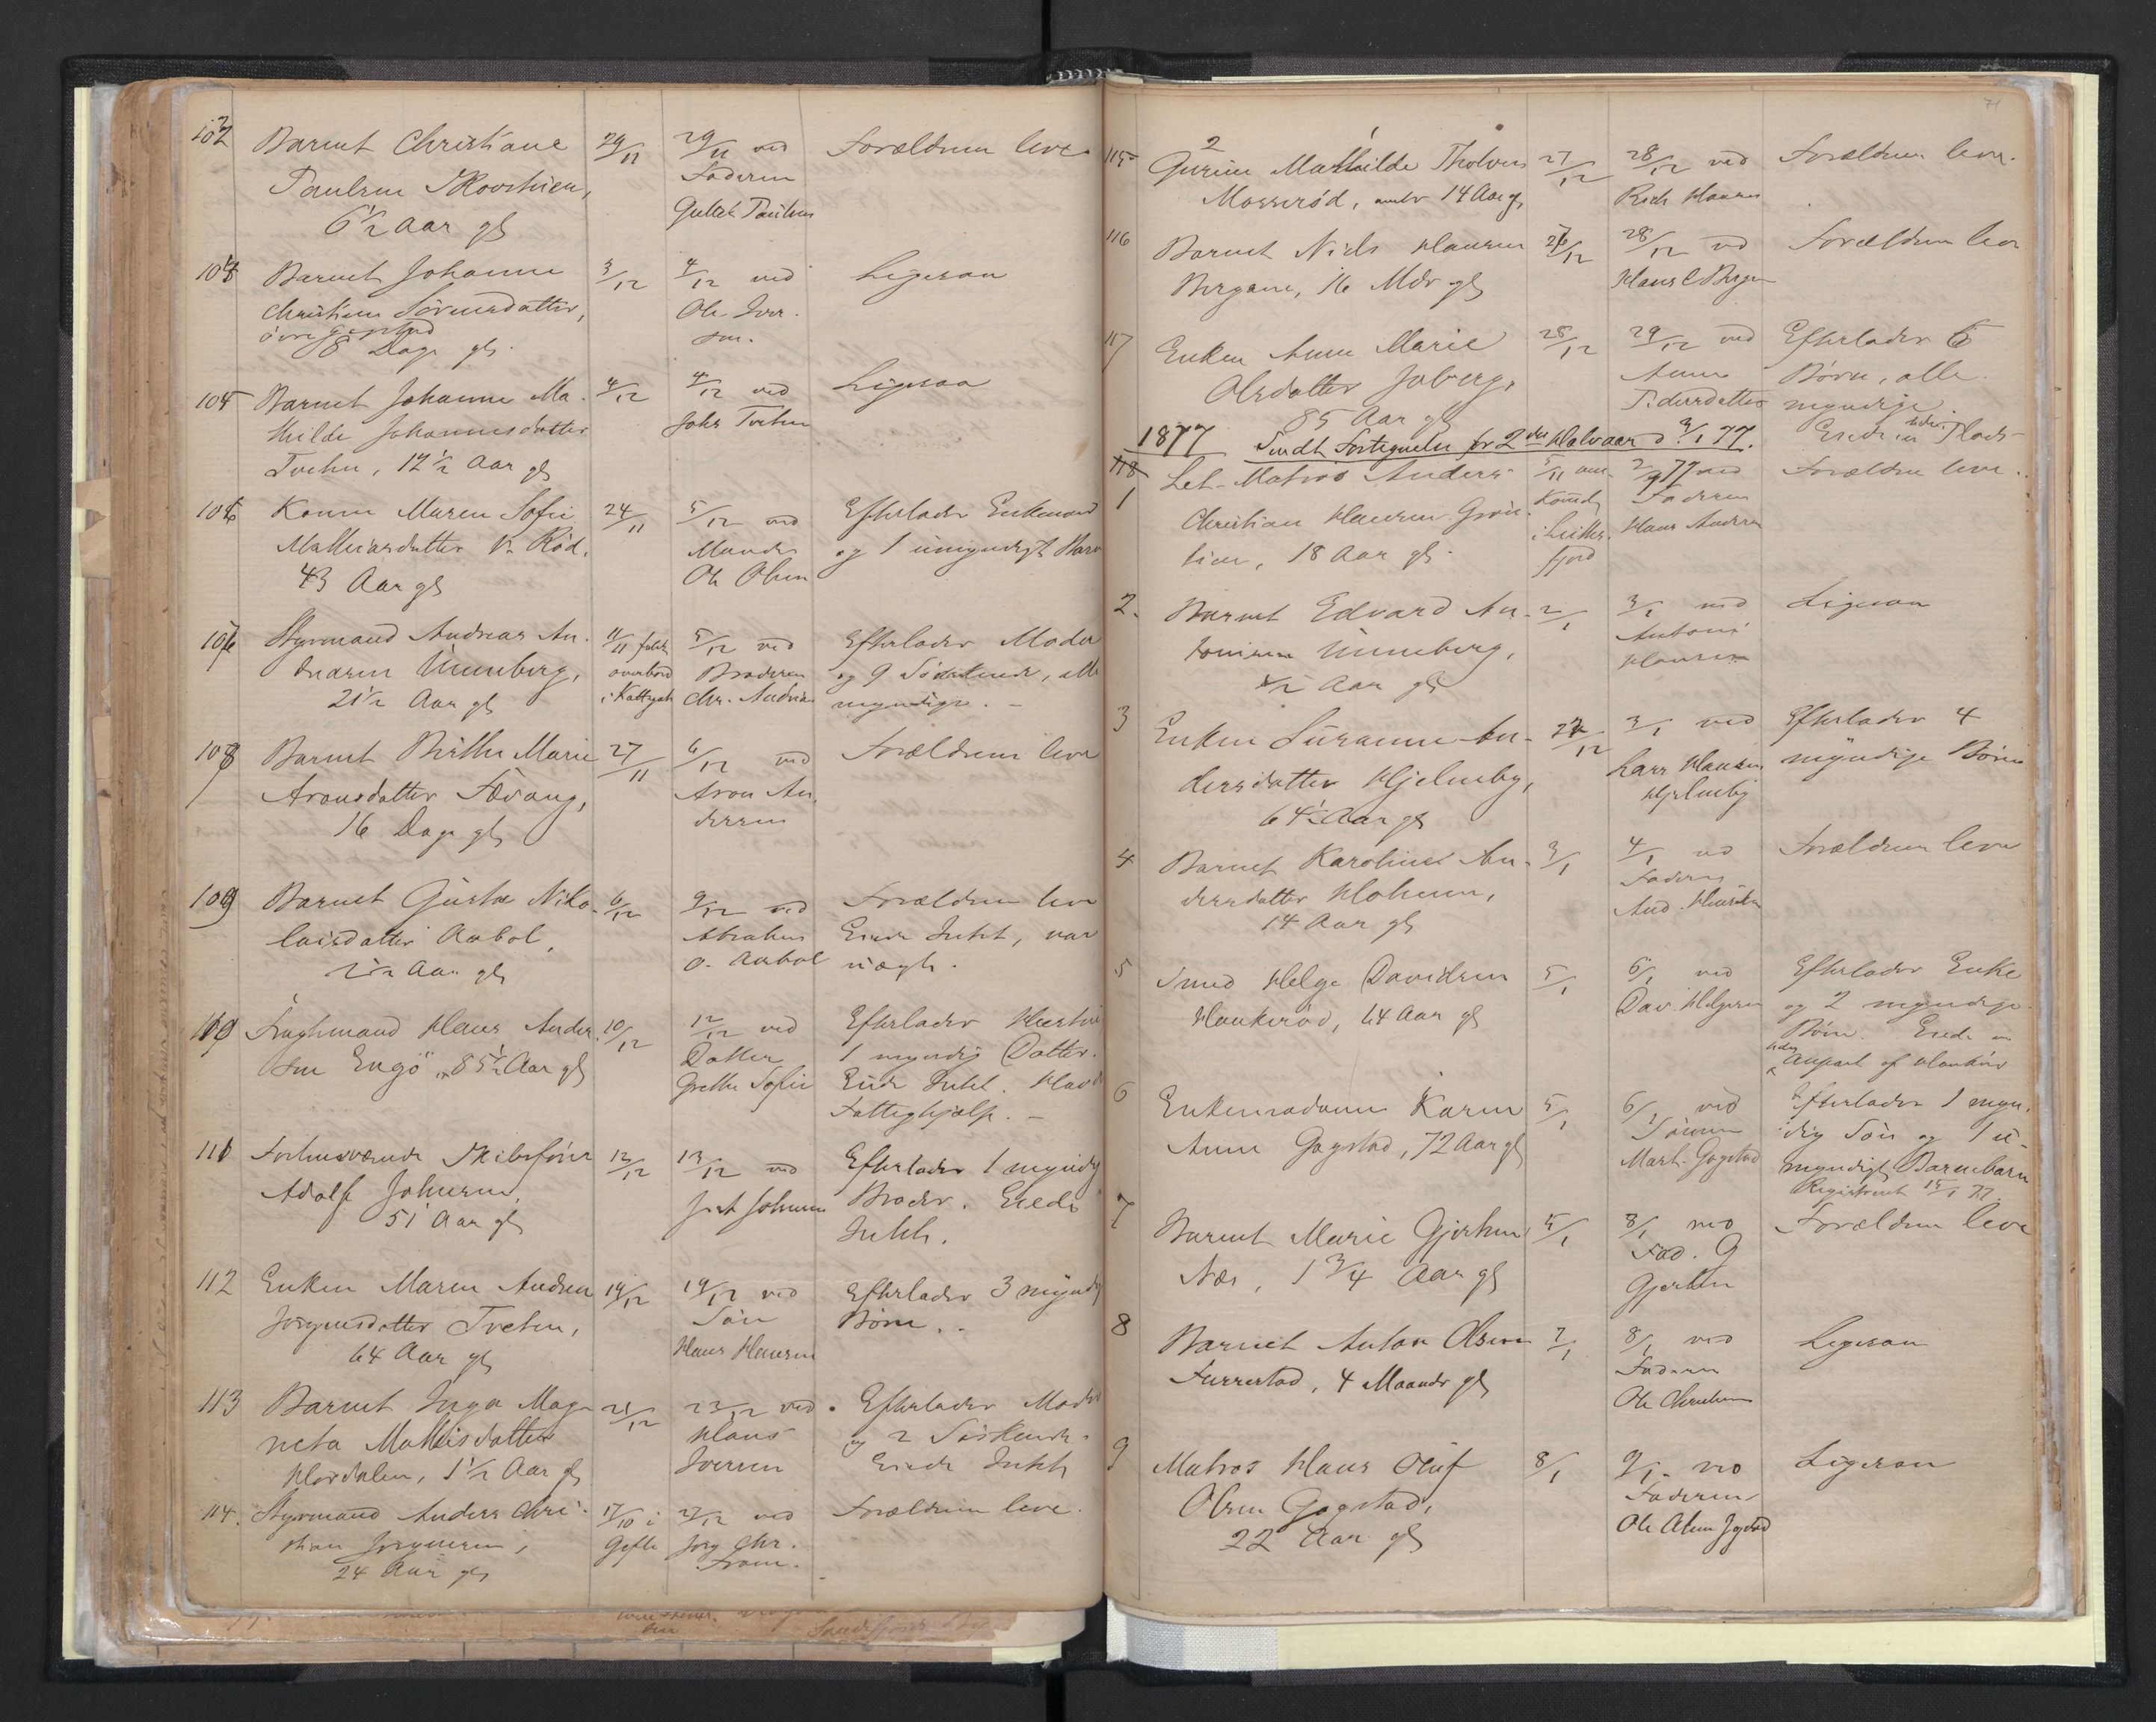 102 Barnet Christiane 29/11 29/11 ved Forældrene leve
Paulsen Skovstuen, Faderen
6 1/2 Aar gl
103 Barnet Johanne 3/12 4/12 ved Ligesaa
Christine Sörensdatter, Ole Iver-
8 Dage gl. sen.
104 Barnet Johanne Ma- 4/12 4/12 ved Ligesaa
thilde Johannesdatter Johs Tveten
Tveten, 12 1/2 Aar gl
105 Konen Maren Sofie 24/11 5/12 ved Efterlader Enkemand
Mathiasdatter Rød, Manden og 1 umyndigt Barn
43 Aar gl Ole Olsen
106 Styrmand Andreas An- 11/11 5/12 ved Efterlader Moder
dreasen Unneberg, overbord Broderen og 9 Södskende, alle
21 1/2 Aar gl i Kattegat Chr. Andreas myndige. -
108 Barnet Birthe Marie 27/11 6/12 ved Forældrene leve
Aronsdatter Fevang, Aron An-
16 Dage gl dersen
109 Barnet Gusta Niko- 6/12 9/12 ved Forældrene leve
laisdatter Aabol, Abraham Eiede Intet, var
Aar gl O. Aabol uægte.
110 Hans Ander- 10/12 12/12 ved Efterlader Hustru
sen Engö, 85 1/2 Aar gl Datter 1 myndig Datter.
Grethe Sofie Eiede Intet. Havde
Fattighjælp. -
111 Forhenværende Skibsfører 12/12 13/12 ved Efterlader 1 myndig
Adolf Johnsen, Johnsen Broder. Eiede
51 Aar gl Intet.
112 Enken Maren Andrea 14/12 14/12 ved Efterlader 3 myndig
Jörgensdatter Tveten, Sön Börn.
64 Aar gl Hans Hansen
113 Barnet Inga Mag- 21/12 23/12 ved Efterlader Moder
neta Mathisdatter Hans og 2 Söskende.
Hovdalen, 1 1/2 Aar gl Iversen Eiede Intet
114. Styrmand Anders Chri- 17/10 i 27/12 ved Forældrene leve.
stian Jorgensen, Gefle Jorg Chr.
24 Aar gl
71
115 Gurine Mathilde Tholvsen 27/12 28/12 ved Forældrene leve.
Mosserød, 14 Aar gl, Hansen
116 Barnet Niels Hansen 26/12 28/12 ved Forældrene leve
Bergane, 16 Mdr gl Hans C Bergan
117 Enken Anne Marie 28/12 29/12 ved Efterlader 6
Olsdatter Joberg, Anne Börn, alle
85 Aar gl Pedersdatter myndige
1877 Sendt Fortegnelse for 2det Halvaar d 2/1 77. Eiede en Plads
118 Let-Matros Anders 5/11 om- 2/1 77 ved Forældre leve.
1 Christian Hansen Grön- Kommet Faderen
lien, 18 Aar gl. fjord Hans Andersen
2. Barnet Edvard An- 2/1 3/1 ved Ligesaa
tonisen Unneberg, Antoni
1/2 Aar gl Hansen
3 Enken Susanne An- 27/12 3/1 ved Efterlader 4
dersdatter Hjelmeby, Lars Hansen myndige Börn
64 1/2 Aar gl Hjelmeby
4 Barnet Karoline An- 3/1 4/1 ved Forældrene leve
dersdatter Holmen, Faderen
14 Aar gl And.
5 Smed Helge Davidsen 5/1 6/1 ved Efterlader Enke
Haukerød, 64 Aar gl Dav. Helgesen og 2 myndige
Börn. Eiede en
Anpart af Haukerød
6 Enkemadame Karen 5/1 6/1 ved Efterlader 1 myn-
Anne Gogstad, 72 Aar gl Sönnen dig Sön og 1 u-
Mart. Gogstad myndigt Barnebarn
Registreret 15/1 77.
7 Barnet Marie Gjertsen 5/1 8/1 ved Forældrene leve
Næs, 1 3/4 Aar gl Fad. G
Gjertsen
8 Barnet Anton Olsen 7/1 8/1 ved Ligesaa
Furrestad, 4 Maaneder gl Faderen
Ole
9 Matros Hans Oluf 8/1 9/1 ved Ligesaa
Olsen Gogstad, Faderen
22 Aar gl Ole Olsen Gogstad